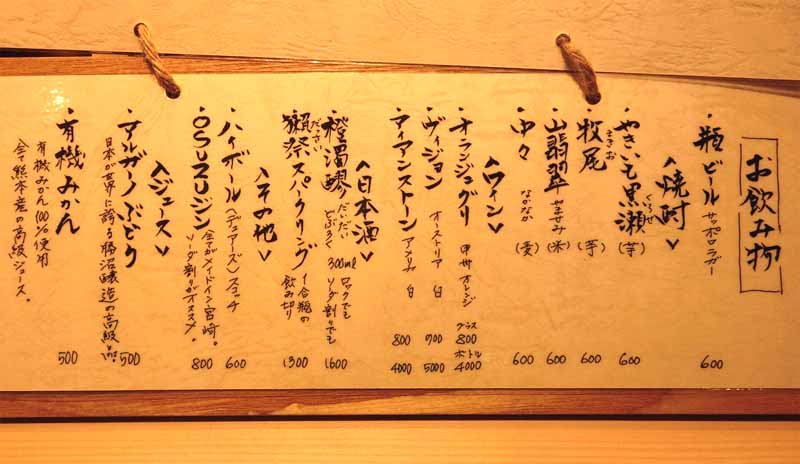 お飲み物
・瓶ビール サッポロラガー 600
〈焼酎〉
・やきいも黒瀬 くろせ (芋) 600
・牧尾 まきお (芋) 600
・山翡翠 やませみ (米) 600
・中々 なかなか (麦) 600
〈ワイン〉
・オランジュグリ 甲州 オレンジ グラス 800 ボトル 4000
・ヴィジョン オーストリア 白 900 5000
・アイアンストーン アメリカ 白 800 4000
〈日本酒〉
・橙濁醪 だいだい どぶろく 300ml ロックでも ソーダ割りでも 1600
・獺祭スパークリング だっさい 1合瓶の飲み切り 1300
〈その他〉
・ハイボール (デュアーズ) スコッチ 600
・OSUZUジン 全てがメイドイン宮崎。ソーダ割りがオススメ。 800
〈ジュース〉
・アルガーノ ぶどう 500
日本が世界に誇る勝沼醸造の高級品。
・有機みかん 500
有機みかん100%使用
全て熊本産の高級ジュース。